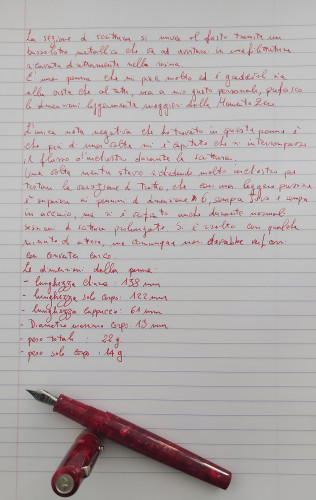 La sezione di scrittura si unisce al fusto tramite un
bussolotto metallico che va ad avvitarsi in una filettatura
ricavata direttamente nella resina.
E' una penna che mi piace molto ed è gradevole sia
alla vista che al tatto, ma a mio gusto personale, preferisco
le dimensioni leggermente maggiori della Momento Zero.
L'unica nota negativa che ho trovato in questa penna è
che più di una volta mi è capitato che si interrompesse
il flusso d'inchiostro durante la scrittura.
Una volta mentre stavo chiedendo molto inchiostro per
testare la variazione di tratto, che con una leggera pressione
è superiore ai pennini di dimensione #6, sempre Jowo e sempre
in acciaio, ma si è ripetuto anche durante normali
sessioni di scrittura prolungate. Si è risolto con qualche
minuto di attesa, ma comunque non dovrebbe succedere
con converter carico
Le dimensioni della penna:
- lunghezza chiusa : 138 mm
- lunghezza solo corpo : 122 mm
- lunghezza cappuccio : 61 mm
- Diametro massimo corpo : 13 mm
- peso totale : 22 g.
- peso solo corpo : 14 g.